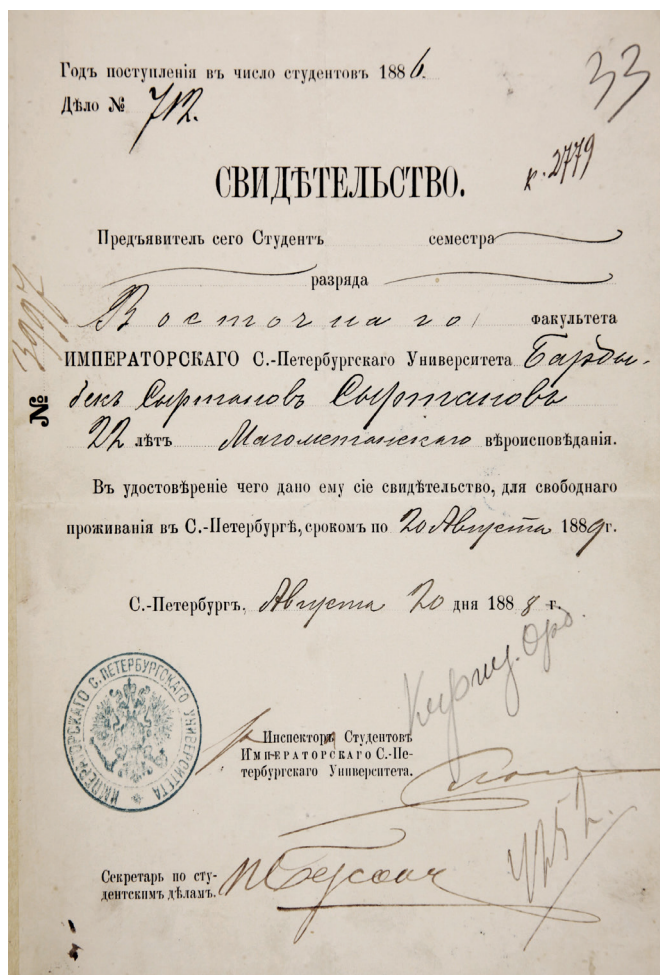 Годъ поступленія въ число студентовъ 1886.
33
Дѣло № 712.
к. 2779
СВИДѢТЕЛЬСТВО.
Предъявитель сего Студентъ семестра
разряда
Восточнаго факультета
ИМПЕРАТОРСКАГО С.-Петербургскаго Университета Барды-
бекъ Сыртановъ Сыртановъ
22 лѣтъ Магометанскаго вѣроисповѣданія.
№ 3997
Въ удостовѣреніе чего дано ему сіе свидѣтельство, для свободнаго
проживанія въ С.-Петербургѣ, срокомъ по 20 Августа 1889 г.
С.-Петербургъ, Августа 20 дня 1888 г.
Киргиз. Орд.
ИМПЕРАТОРСКАГО С. ПЕТЕРБУРГСКАГО УНИВЕРСИТЕТА
Инспектора Студентовъ
ИМПЕРАТОРСКАГО С.-Пе-
тербургскаго Университета.
4252.
Секретарь по сту-
дентскимъ дѣламъ.